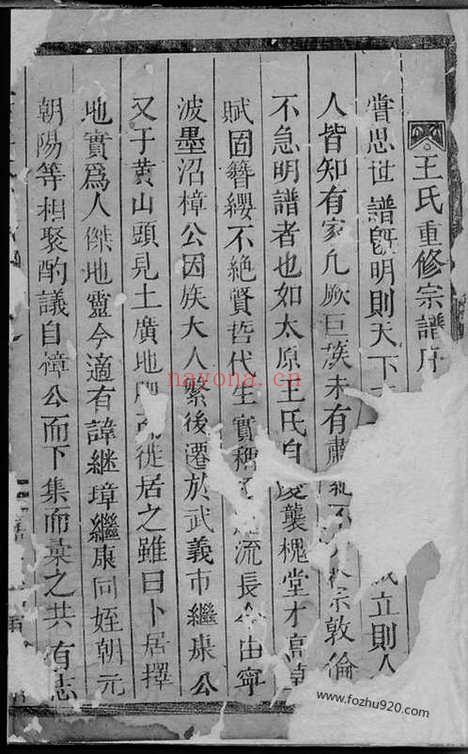 王氏重修宗譜序
嘗思世譜旣明則天下立則人
人皆知有家凡厥巨族未有肅宗敦倫
不急明譜者也如太原王氏自襲槐堂才高
賦固簪纓不絶賢哲代生實流長由寧
波墨沼樟公因族大人繁後遷於武義市繼康公
又于黄山頭見土廣地而徙居之雖曰卜居擇
地實爲人傑地靈今適有諱繼璋繼康同姪朝元
朝陽等相聚酌議自樟公而下集而彙之共有志
nayona.cn
www.fozhu920.com